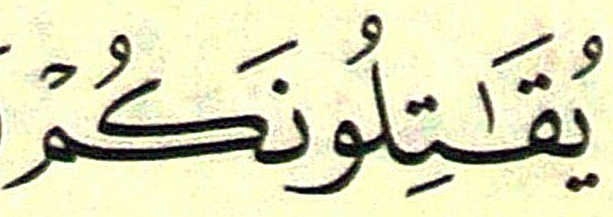 يُقَـٰتِلُونَكُمْ